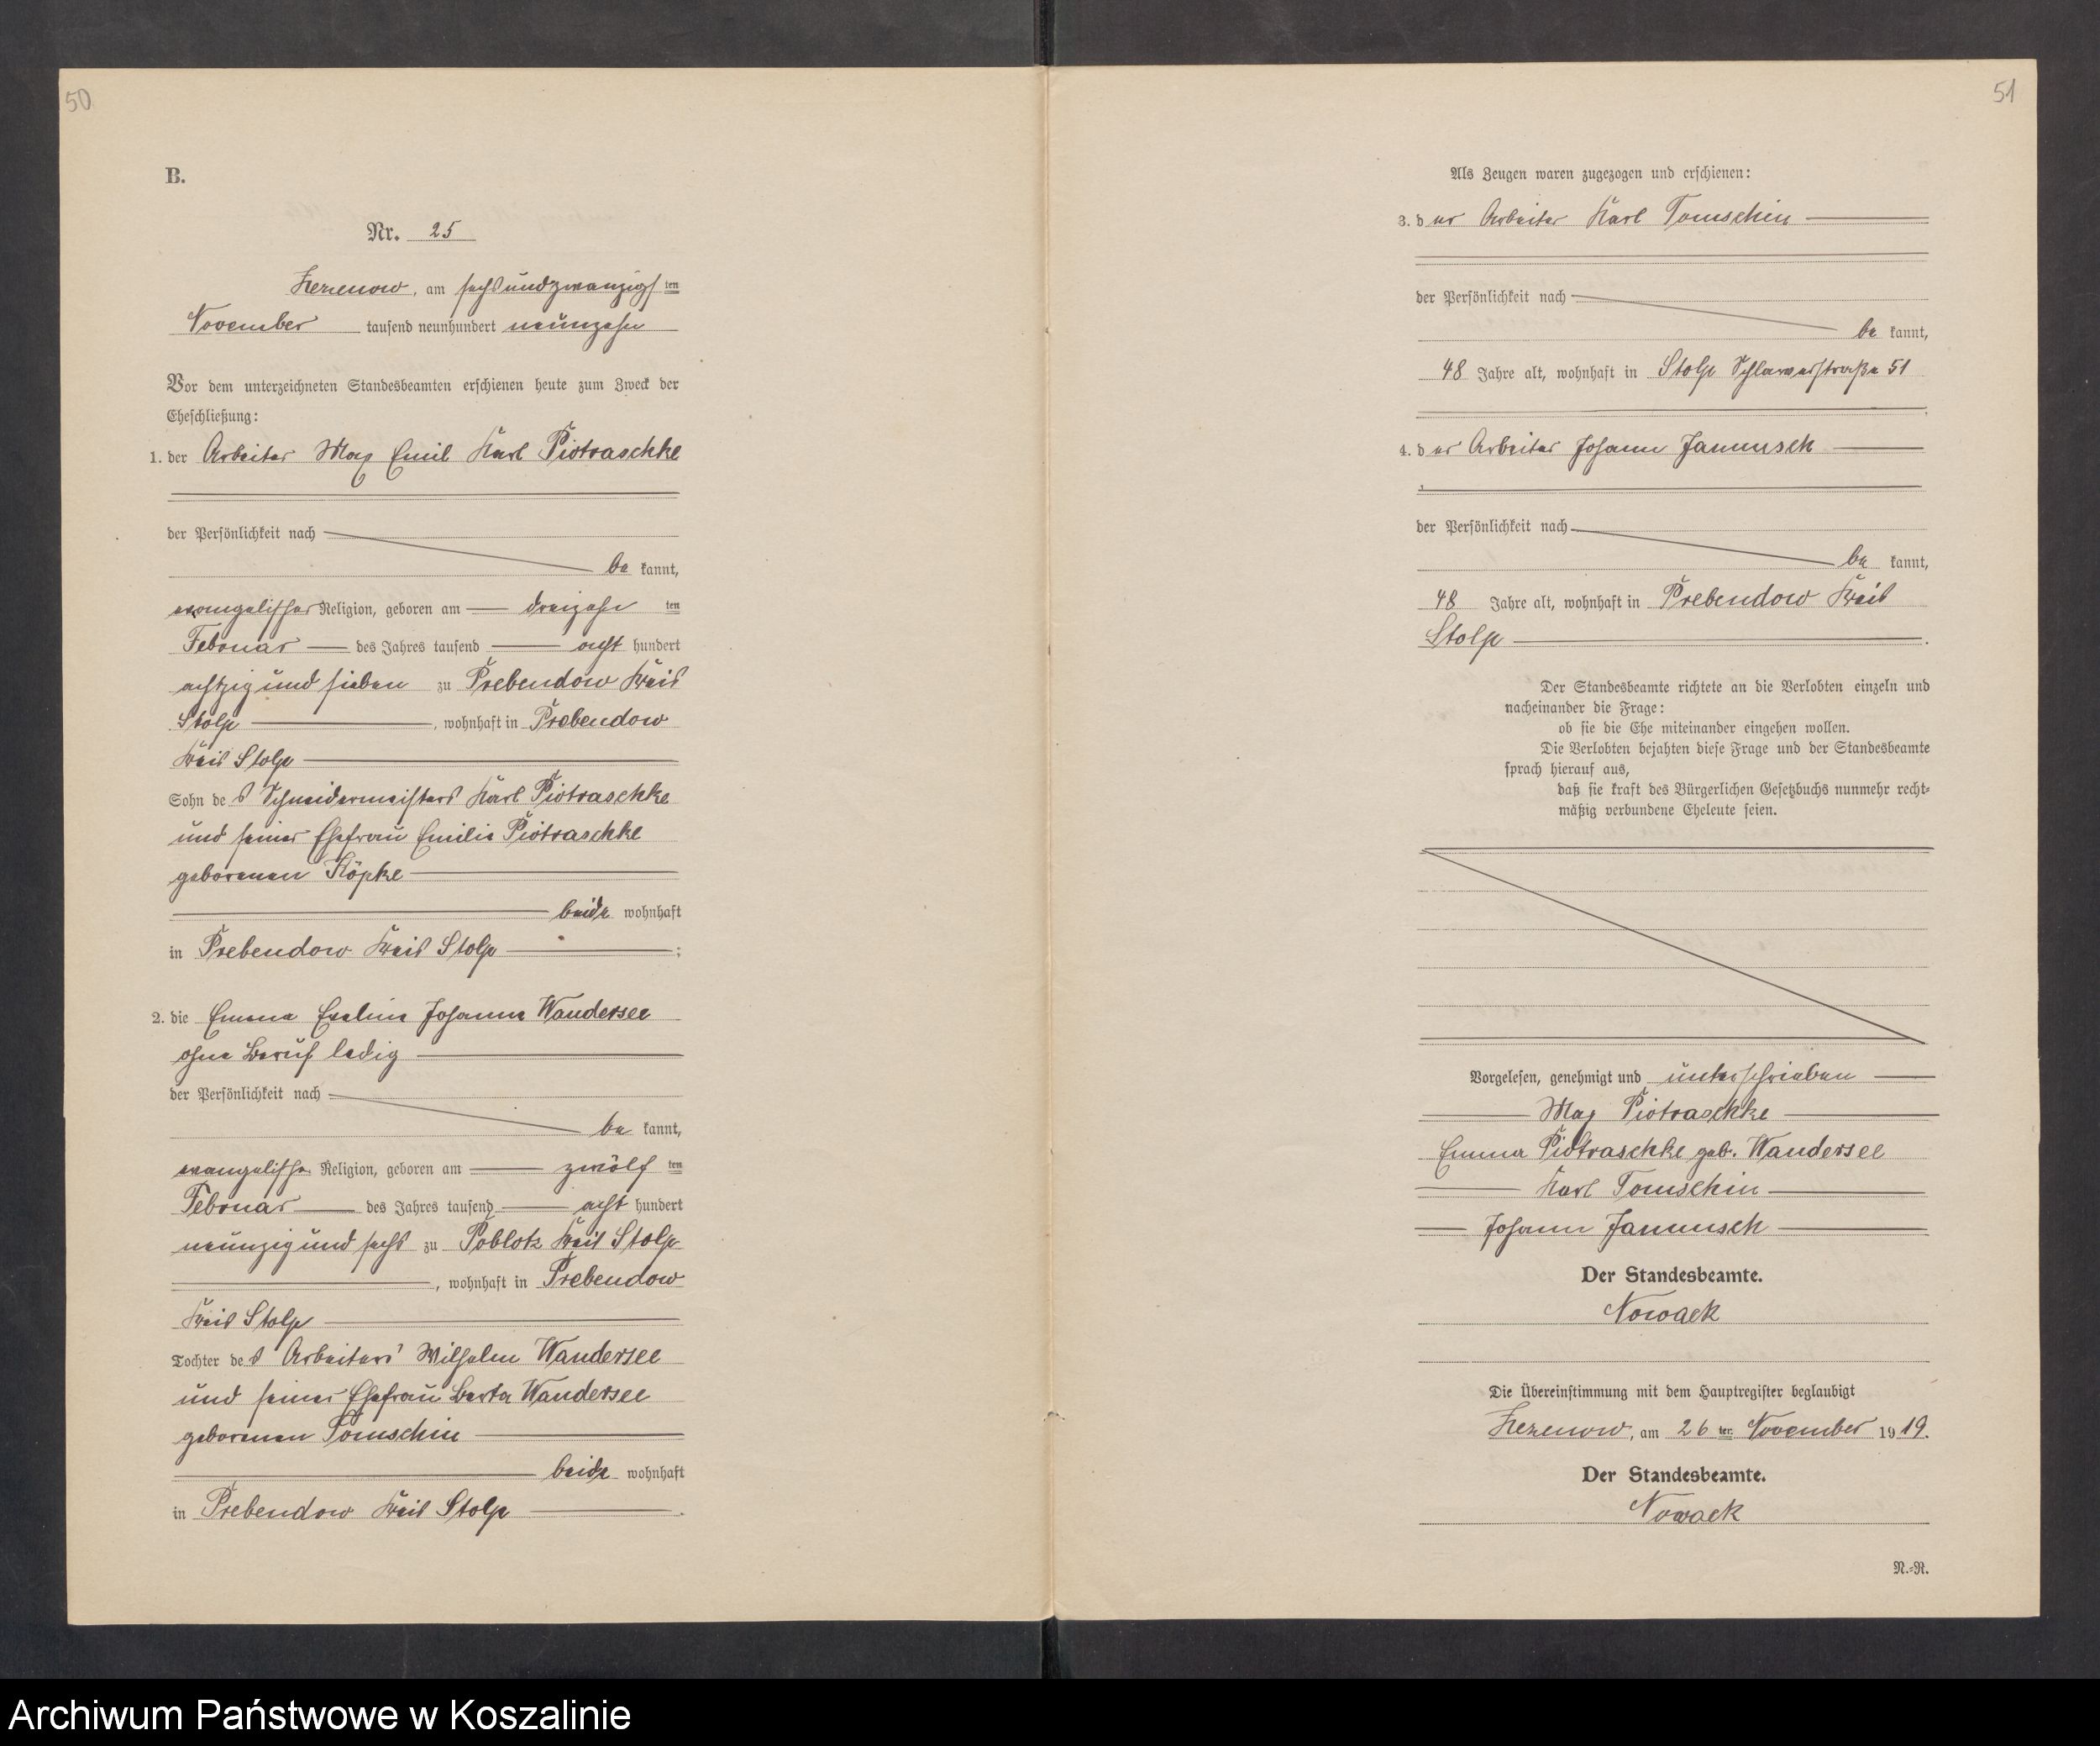 50
B.
Nr. 25
Zezenow, am sechsundzwanzigsten
November tausend neunhundert neunzehn
Vor dem unterzeichneten Standesbeamten erschienen heute zum Zweck der
Eheschließung:
1. der Arbeiter Max Emil Karl Piotraschke
der Persönlichkeit nach
be kannt,
evangelischer Religion, geboren am dreizehn ten
Februar des Jahres tausend acht hundert
achtzig und sieben zu Prebendow Kreis
Stolp, wohnhaft in Prebendow
Kreis Stolp
Sohn des Schneidermeisters Karl Piotraschke
und seiner Ehefrau Emilie Piotraschke
geborenen Köpke
beide wohnhaft
in Prebendow Kreis Stolp;
2. die Emma Eveline Johanna Wandersee
ohne Beruf ledig
der Persönlichkeit nach
be kannt,
evangelischer Religion, geboren am zwölf ten
Februar des Jahres tausend acht hundert
neunzig und sechs zu Poblotz Kreis Stolp
, wohnhaft in Prebendow
Kreis Stolp
Tochter des Arbeiters Wilhelm Wandersee
und seiner Ehefrau Berta Wandersee
geborenen Tomschin
beide wohnhaft
in Prebendow Kreis Stolp.
51
Als Zeugen waren zugezogen und erschienen:
3. der Arbeiter Karl Tomschin
der Persönlichkeit nach
be kannt,
48 Jahre alt, wohnhaft in Stolp Schlawerstraße 51
4. der Arbeiter Johann Jannusch
der Persönlichkeit nach
be kannt,
48 Jahre alt, wohnhaft in Prebendow Kreis
Stolp.
Der Standesbeamte richtete an die Verlobten einzeln und
nacheinander die Frage:
ob sie die Ehe miteinander eingehen wollen.
Die Verlobten bejahten diese Frage und der Standesbeamte
sprach hierauf aus,
daß sie kraft des Bürgerlichen Gesetzbuchs nunmehr recht-
mäßig verbundene Eheleute seien.
Vorgelesen, genehmigt und unterschrieben
Max Piotraschke
Emma Piotraschke geb. Wandersee
Karl Tomschin
Johann Jannusch
Der Standesbeamte.
Nowack
Die Übereinstimmung mit dem Hauptregister beglaubigt
Zezenow, am 26 ten November 1919.
Der Standesbeamte.
Nowack
N.-R.
Archiwum Państwowe w Koszalinie